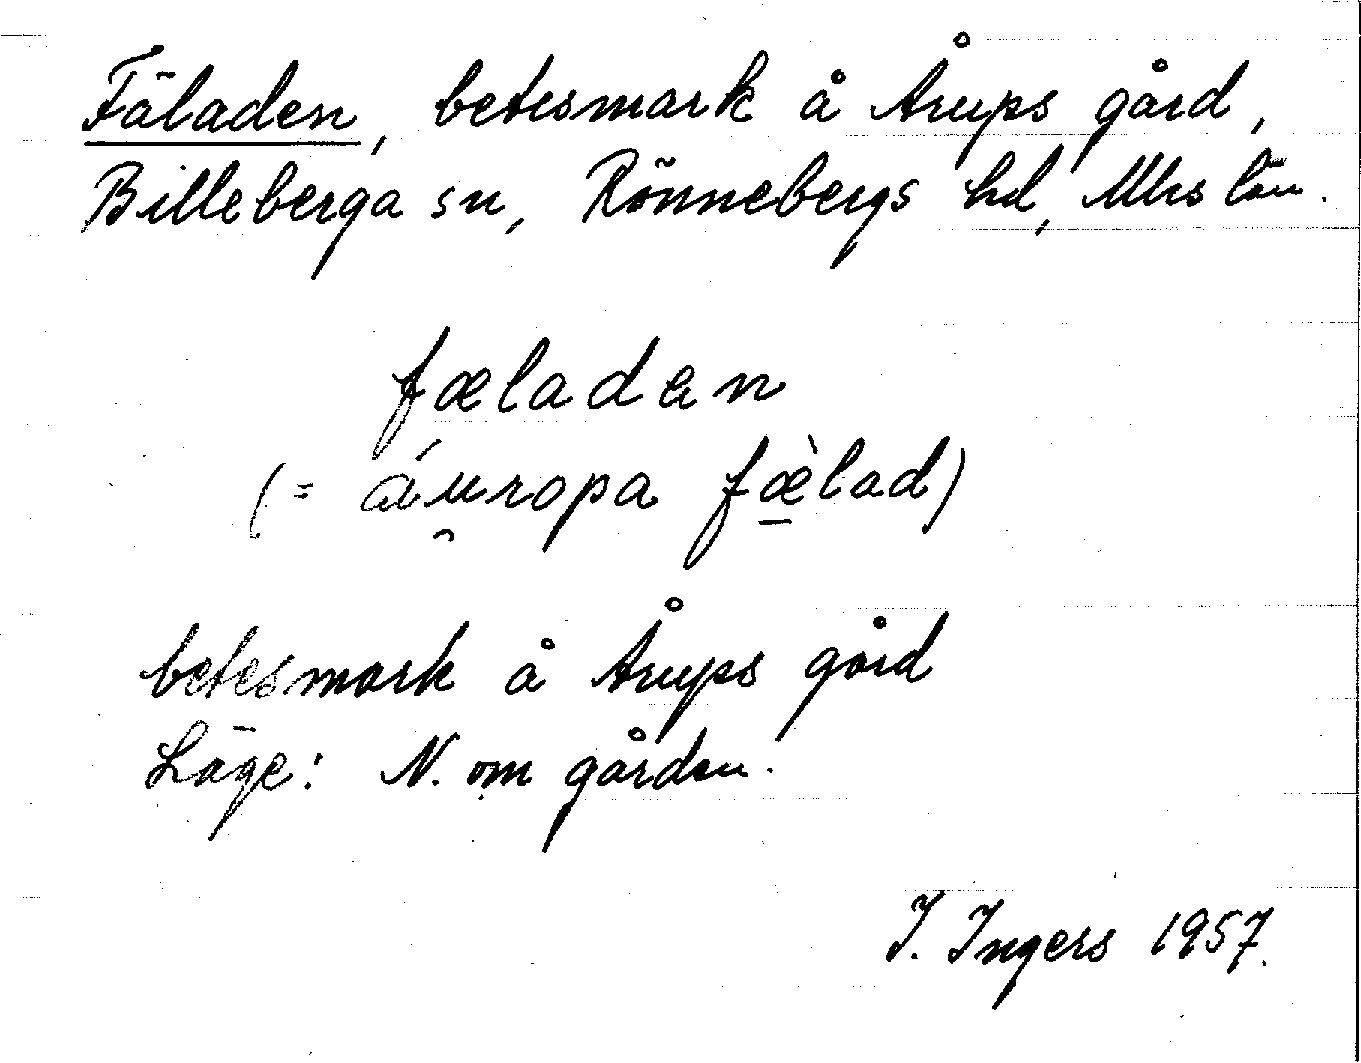 Fäladen, betesmark å Årups gård,
Billeberga sn, Rönnebergs hd, Mhs län.
fæladen
(= áu̯ropa fæ̱̀lad)
betesmark å Årups gård
Läge: N. om gården.
I. Ingers 1957.